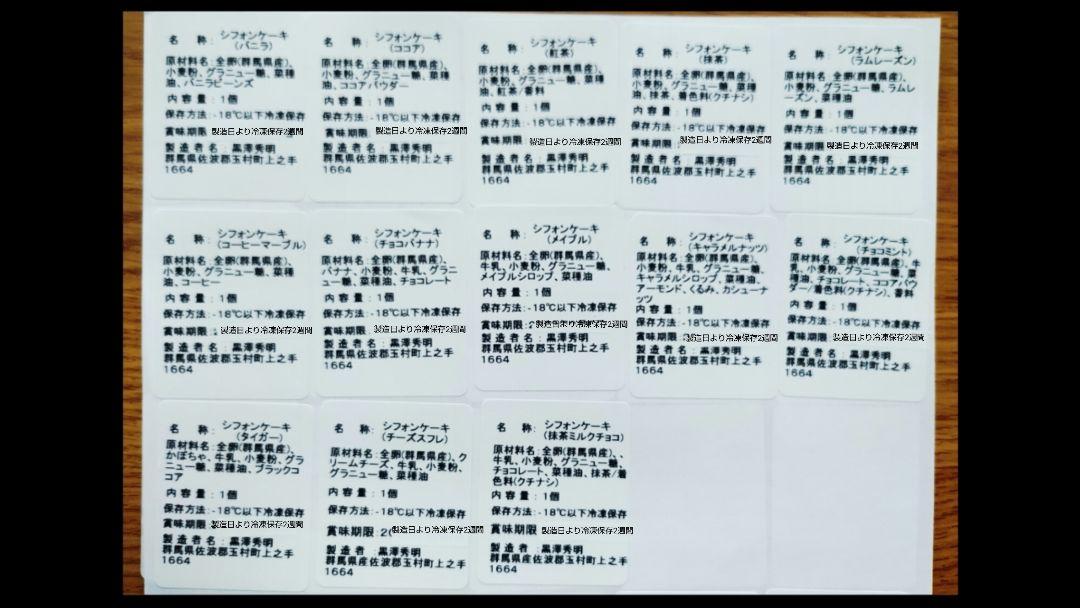 名 称： シフォンケーキ
(バニラ)
原材料名：全卵(群馬県産)、
小麦粉、グラニュー糖、菜種
油、バニラビーンズ
内 容 量：1個
保存方法：-18℃以下冷凍保存
賞味期限 製造日より冷凍保存2週間
製 造 者 名：黒澤秀明
群馬県佐波郡玉村町上之手
1664
名 称： シフォンケーキ
(ココア)
原材料名：全卵(群馬県産)、
小麦粉、グラニュー糖、菜種
油、ココアパウダー
内 容 量：1個
保存方法：-18℃以下冷凍保存
賞味期限 製造日より冷凍保存2週間
製 造 者 名：黒澤秀明
群馬県佐波郡玉村町上之手
1664
名 称： シフォンケーキ
(紅茶)
原材料名：全卵(群馬県産)、
小麦粉、グラニュー糖、菜種
油、紅茶/香料
内 容 量：1個
保存方法：-18℃以下冷凍保存
賞味期限 製造日より冷凍保存2週間
製 造 者 名：黒澤秀明
群馬県佐波郡玉村町上之手
1664
名 称： シフォンケーキ
(抹茶)
原材料名：全卵(群馬県産)、
小麦粉、グラニュー糖、菜種
油、抹茶、着色料(クチナシ)
内 容 量：1個
保存方法：-18℃以下冷凍保存
賞味期限 製造日より冷凍保存2週間
製 造 者 名：黒澤秀明
群馬県佐波郡玉村町上之手
1664
名 称： シフォンケーキ
(ラムレーズン)
原材料名：全卵(群馬県産)、
小麦粉、グラニュー糖、ラムレ
ーズン、菜種油
内 容 量：1個
保存方法：-18℃以下冷凍保存
賞味期限 製造日より冷凍保存2週間
製 造 者 名：黒澤秀明
群馬県佐波郡玉村町上之手
1664
名 称： シフォンケーキ
(コーヒーマーブル)
原材料名：全卵(群馬県産)、
小麦粉、グラニュー糖、菜種
油、コーヒー
内 容 量：1個
保存方法：-18℃以下冷凍保存
賞味期限： 製造日より冷凍保存2週間
製 造 者 名：黒澤秀明
群馬県佐波郡玉村町上之手
1664
名 称： シフォンケーキ
(チョコバナナ)
原材料名：全卵(群馬県産)、
バナナ、小麦粉、牛乳、グラニ
ュー糖、菜種油、チョコレート
内 容 量：1個
保存方法：-18℃以下冷凍保存
賞味期限： 製造日より冷凍保存2週間
製 造 者 名：黒澤秀明
群馬県佐波郡玉村町上之手
1664
名 称： シフォンケーキ
(メイプル)
原材料名：全卵(群馬県産)、
牛乳、小麦粉、グラニュー糖、
メイプルシロップ、菜種油
内 容 量：1個
保存方法：-18℃以下冷凍保存
賞味期限： 製造日より冷凍保存2週間
製 造 者 名：黒澤秀明
群馬県佐波郡玉村町上之手
1664
名 称： シフォンケーキ
(キャラメルナッツ)
原材料名：全卵(群馬県産)、
小麦粉、牛乳、グラニュー糖、
キャラメルシロップ、菜種油、
アーモンド、くるみ、カシューナ
ッツ
内 容 量：1個
保存方法：-18℃以下冷凍保存
賞味期限： 製造日より冷凍保存2週間
製 造 者 名：黒澤秀明
群馬県佐波郡玉村町上之手
1664
名 称： シフォンケーキ
(チョコミント)
原材料名：全卵(群馬県産)、牛
乳、小麦粉、グラニュー糖、菜
種油、チョコレート、ココアパウ
ダー/着色料(クチナシ)、香料
内 容 量：1個
保存方法：-18℃以下冷凍保存
賞味期限 製造日より冷凍保存2週間
製 造 者 名：黒澤秀明
群馬県佐波郡玉村町上之手
1664
名 称： シフォンケーキ
(タイガー)
原材料名：全卵(群馬県産)、
かぼちゃ、牛乳、小麦粉、グラ
ニュー糖、菜種油、ブラックコ
コア
内 容 量：1個
保存方法：-18℃以下冷凍保存
賞味期限 製造日より冷凍保存2週間
製 造 者 名：黒澤秀明
群馬県佐波郡玉村町上之手
1664
名 称： シフォンケーキ
(チーズスフレ)
原材料名：全卵(群馬県産)、ク
リームチーズ、牛乳、小麦粉、
グラニュー糖、菜種油
内 容 量：1個
保存方法：-18℃以下冷凍保存
賞味期限：20 製造日より冷凍保存2週間
製 造 者：黒澤秀明
群馬県産佐波郡玉村町上之手
1664
名 称： シフォンケーキ
(抹茶ミルクチョコ)
原材料名：全卵(群馬県産)、、
牛乳、小麦粉、グラニュー糖、
チョコレート、菜種油、抹茶/着
色料(クチナシ)
内 容 量：1個
保存方法：-18℃以下冷凍保存
賞味期限 製造日より冷凍保存2週間
製 造 者 黒澤秀明
群馬県産佐波郡玉村町上之手
1664